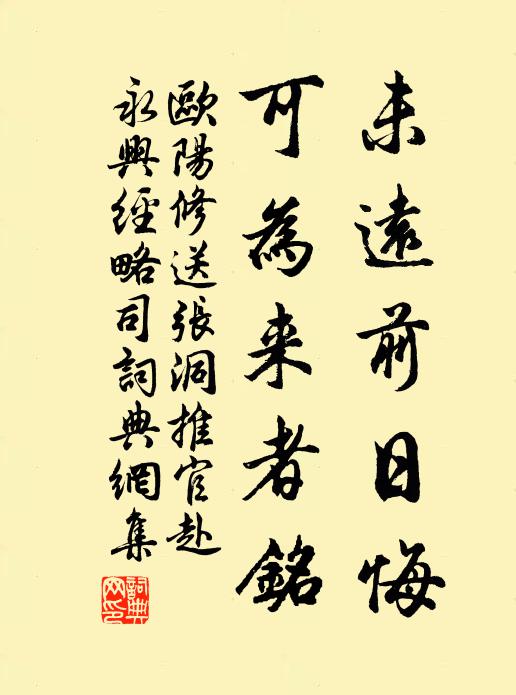 未遠前日悔
可為来者銘
歐陽修送張洞推官赴
永興經略司詞典網集
詞典
网印